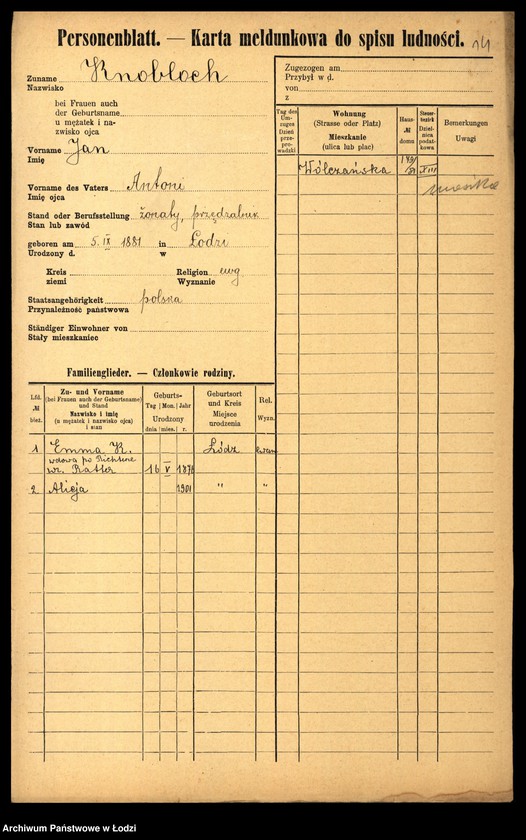 Personenblatt. — Karta meldunkowa do spisu ludności. 14
Zuname Knobloch
Nazwisko
bei Frauen auch
der Geburtsname
u mężatek i na-
zwisko ojca
Vorname Jan
Imię
Vorname des Vaters Antoni
Imię ojca
Stand oder Berufsstellung żonaty, przędzalnik
Stan lub zawód
geboren am 5. IX 1881 in Łodzi
Urodzony d. w
Kreis Religion ewg
ziemi Wyznanie
Staatsangehörigkeit polska
Przynależność państwowa
Ständiger Einwohner von
Stały mieszkaniec
Zugezogen am
Przybył w d.
von
z
Tag des Um-zuges Dzień prze-prowadzki
Wohnung
(Strasse oder Platz)
Mieszkanie
(ulica lub plac)
Haus-
№
domu
Steuer-bezirk Dziel-nica podat-kowa
Bemerkungen
Uwagi
Wólczańska XIII
Familienglieder. — Członkowie rodziny.
Lfd.
№
bież.
Zu- und Vorname
(bei Frauen auch der Geburtsname)
und Stand
Nazwisko i imię
(u mężatek i nazwisko ojca)
i stan
Geburts-
Tag Mon. Jahr
Urodzony
dnia mies. r.
Geburtsort
und Kreis
Miejsce
urodzenia
Rel.
Wyzn.
1 Emma K. Łódź
wdowa po
16 V
2 Alicja 1901 " "
Archiwum Państwowe w Łodzi